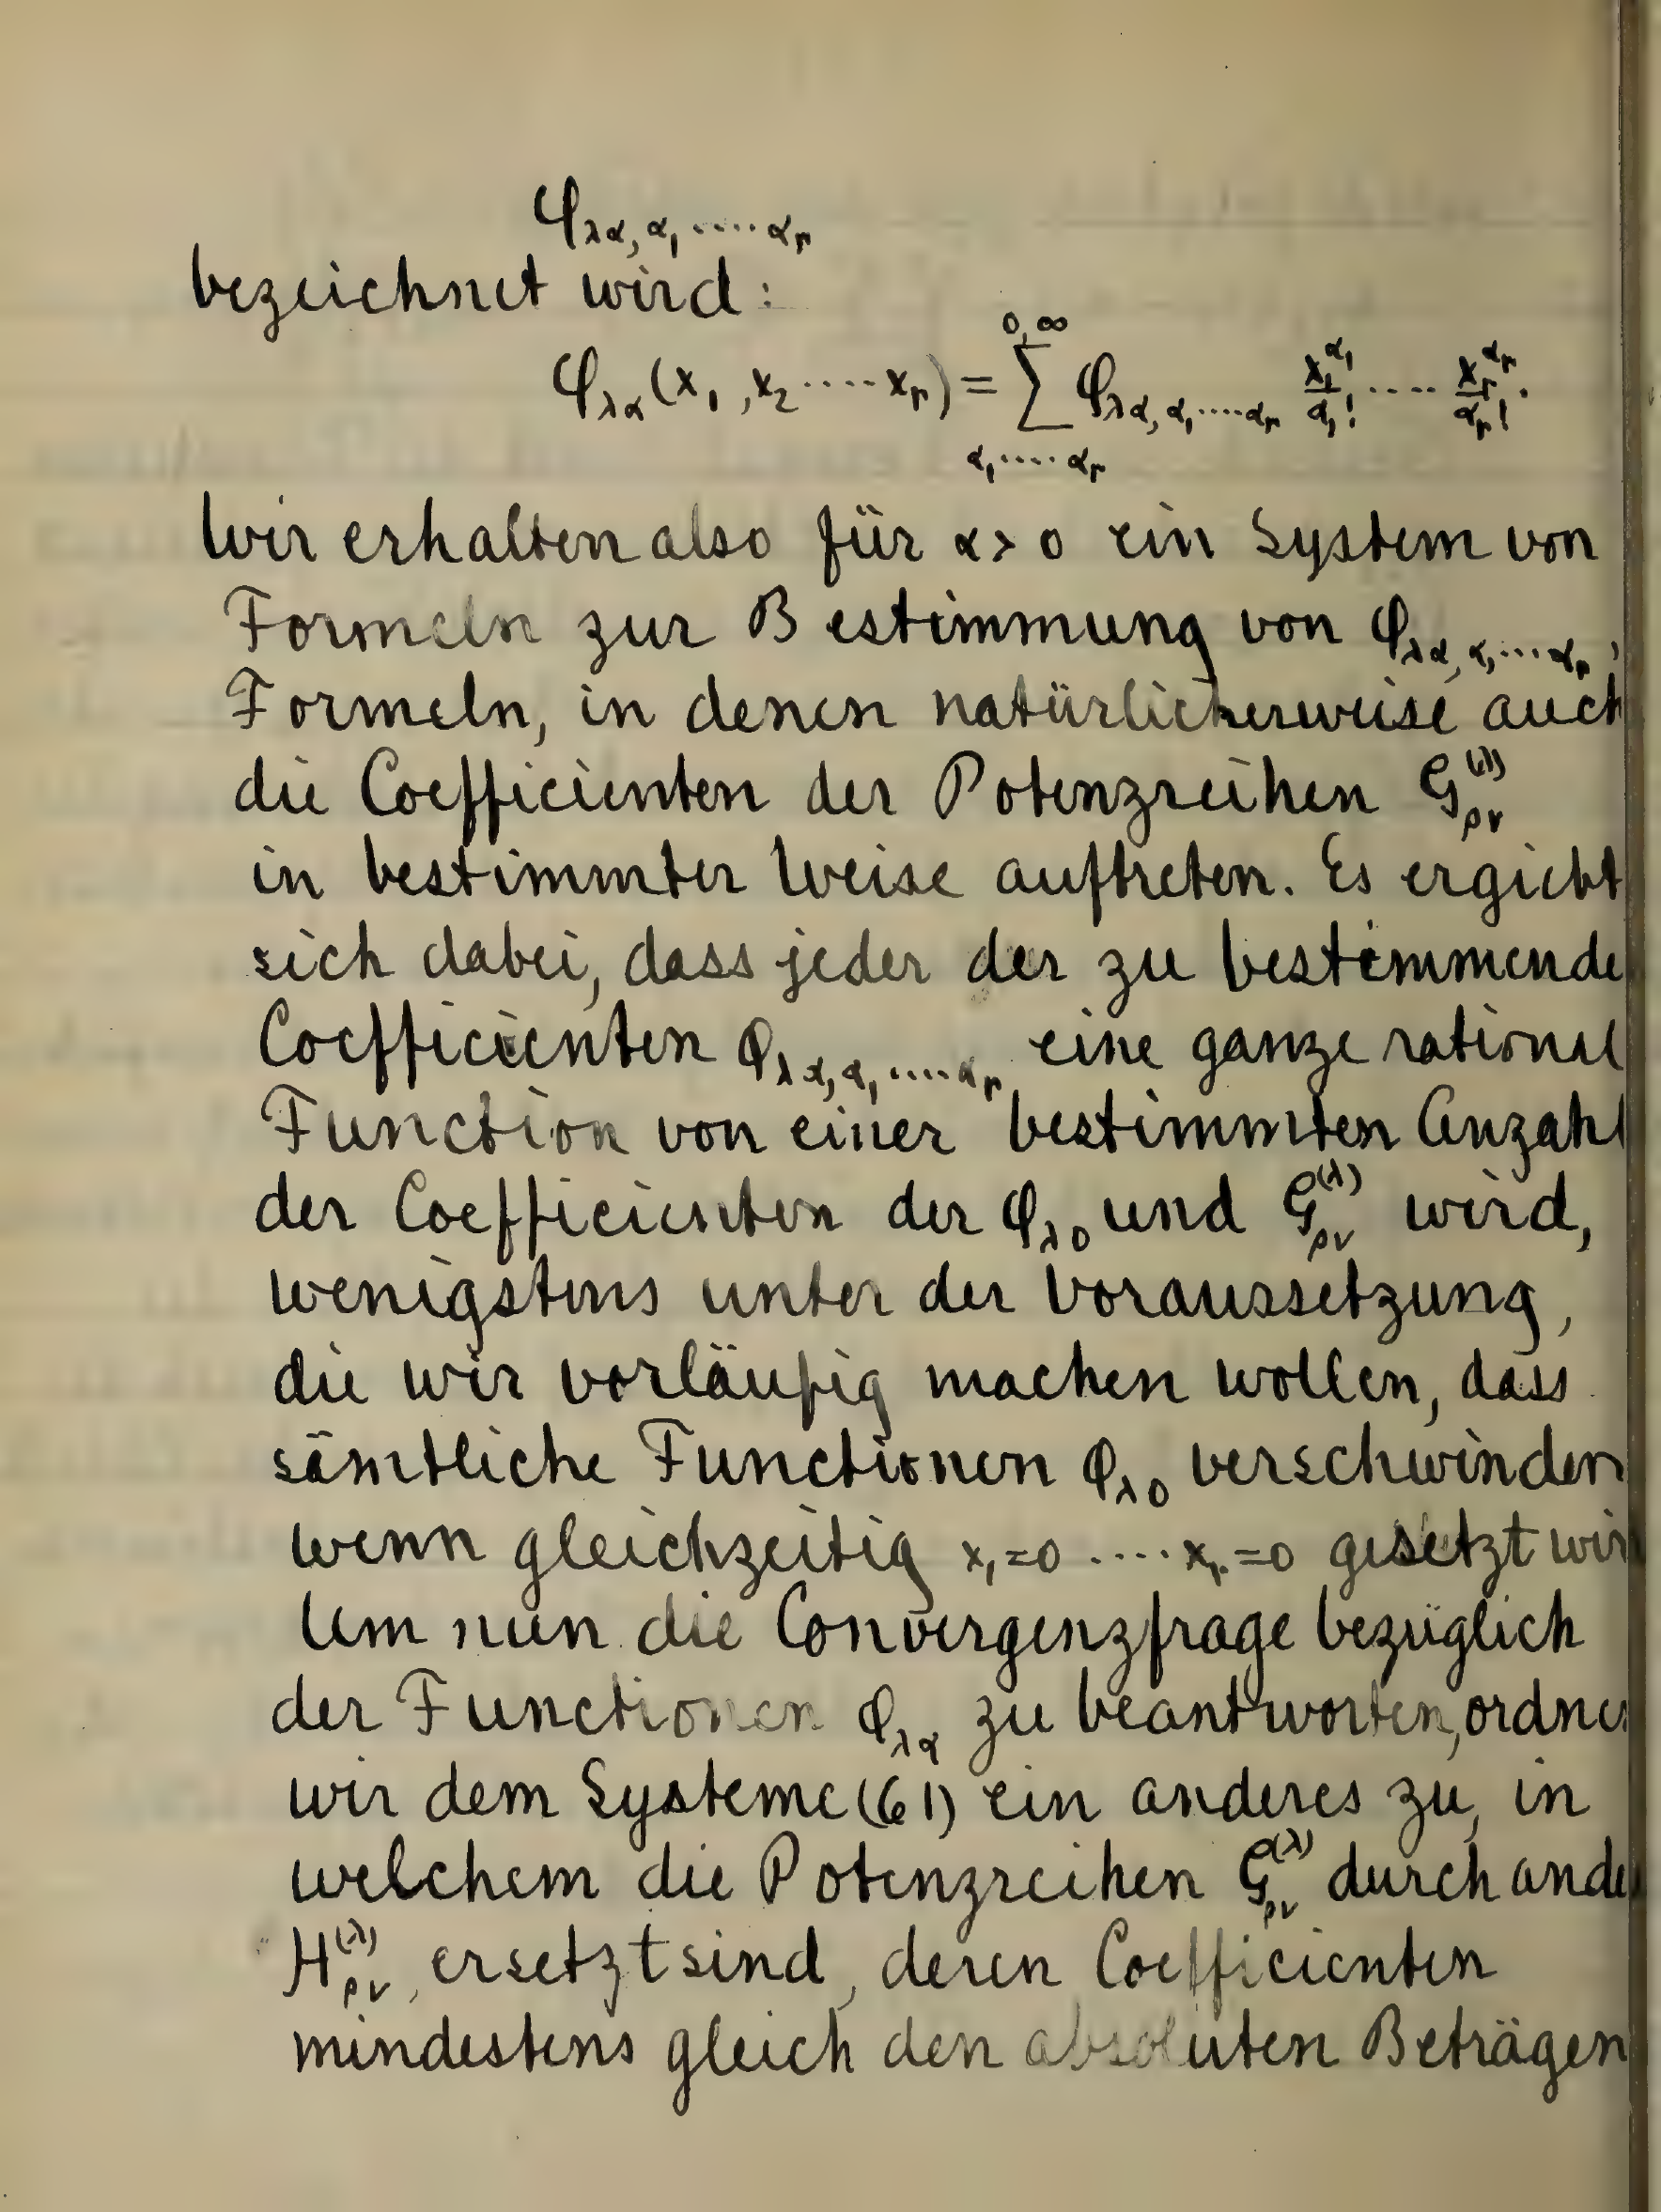 φ_{λα, α₁ ..... α_r}
bezeichnet wird:
φ_{λα}(x₁, x₂ ..... x_r) = \sum_{α₁ ..... α_r}^{0, ∞} φ_{λα, α₁ ..... α_r} \frac{x_1^{α_1}}{α_1!} ..... \frac{x_r^{α_r}}{α_r!}.
Wir erhalten also für α > 0 ein System von
Formeln zur Bestimmung von φ_{λα, α₁ ... α_r},
Formeln, in denen natürlicherweise auch
die Coefficienten der Potenzreihen G_{ρν}^{(λ)}
in bestimmter Weise auftreten. Es ergiebt
sich dabei, dass jeder der zu bestimmende
Coefficienten φ_{λα, α₁ ..... α_r} eine ganze rational
Function von einer bestimmten Anzahl
der Coefficienten der φ_{λ0} und G_{ρν}^{(λ)} wird,
wenigstens unter der Voraussetzung,
die wir vorläufig machen wollen, dass
sämtliche Functionen φ_{λ0} verschwinden
wenn gleichzeitig x₁=0 ..... x_r=0 gesetzt wir
Um nun die Convergenzfrage bezüglich
der Functionen φ_{λα} zu beantworten, ordne
wir dem Systeme (61) ein anderes zu, in
welchem die Potenzreihen G_{ρν}^{(λ)} durch ande
H_{ρν}^{(λ)}, ersetzt sind, deren Coefficienten
mindestens gleich den absoluten Beträgen